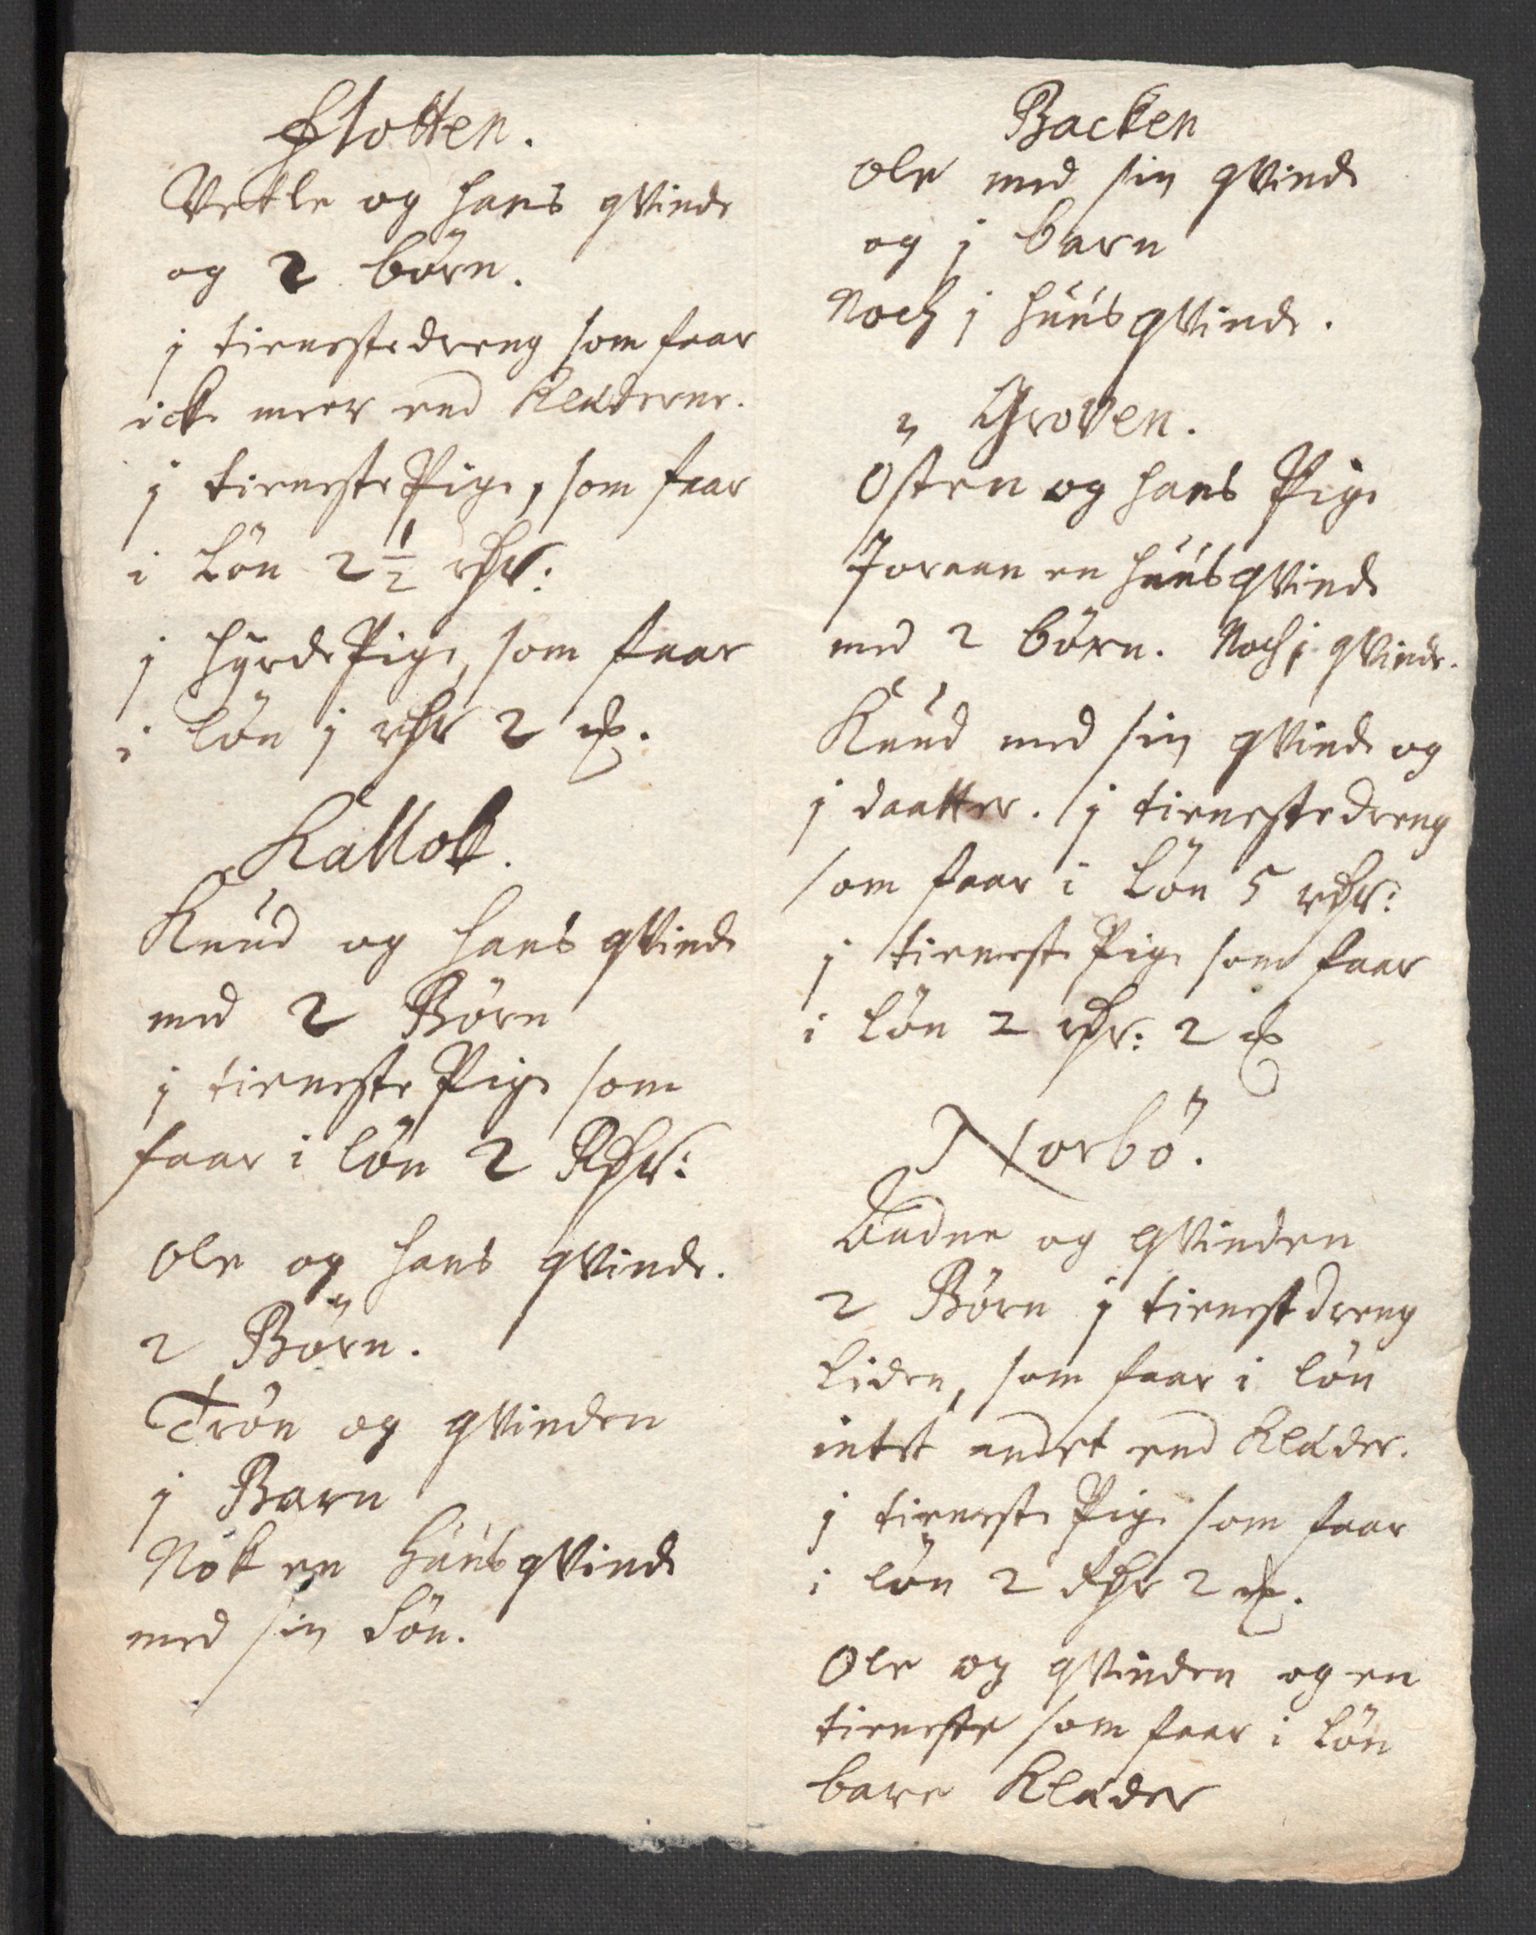 Flotten.
Vetle og hans qvinde
og 2 börn.
j tieneste dreng som faar
icke meer end Klæderne.
j tieneste Pige, som faar
i Lön 2 1/2 rdr:
j hyrde Pige, som faar
i lön j rdr 2 mk.
Kallok.
Knud og hans qvinde
med 2 Börn
j tieneste Pige som
faar i lön 2 Rdr:
Ole og hans qvinde.
2 Börn.
Trön og qvinden
j Barn
Nok en huusqvinde
med sin Sön.
Backen
Ole med sin qvinde
og j barn
Noch j huusqvinde.
Groven.
Osten og hans Pige
Joraan en huusqvinde
med 2 börn. Noch j qvinde.
Knud med sin qvinde og
j daatter. j tieneste dreng
som faar i Lön 5 rdr:
j tieneste Pige som faar
i lön 2 rdr: 2 mk
Norbö.
Gudne og qvinden
2 Börn j tienest dreng
liden, som faar i lön
intet andet end Klæder.
j tieneste Pige som faar
i lön 2 rdr 2 mk.
Ole og qvinden og en
tieneste som faar i Lön
bare Klæder